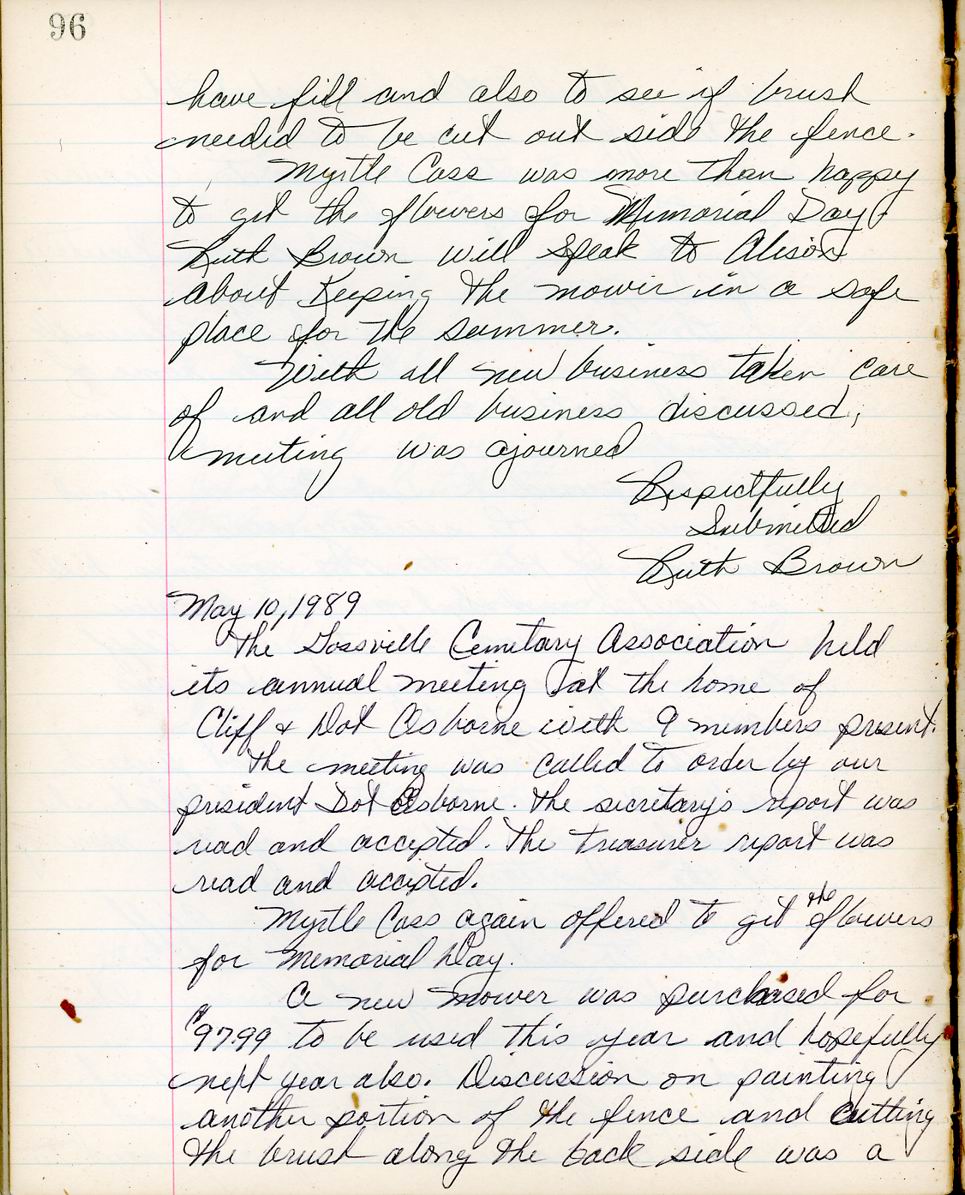 96
have fill and also to see if brush
needed to be cut out side the fence.
Myrtle Cass was more than happy
to get the flowers for Memorial Day.
Ruth Brown will speak to Alison
about keeping the mower in a safe
place for the summer.
With all new business taken care
of and all old business discussed,
meeting was ajourned
Respectfully
Submitted
Ruth Brown
May 10, 1989
The Gossville Cemetary Association held
its annual meeting at the home of
Cliff & Dot Osborne with 9 members present.
The meeting was called to order by our
president Dot Osborne. The secretary's report was
read and accepted. The Treasurer report was
read and accepted.
Myrtle Cass again offered to get the flowers
for Memorial Day.
A new mower was purchased for
$97.99 to be used this year and hopefully
next year also. Discussion on painting
another portion of the fence and cutting
the brush along the back side was a